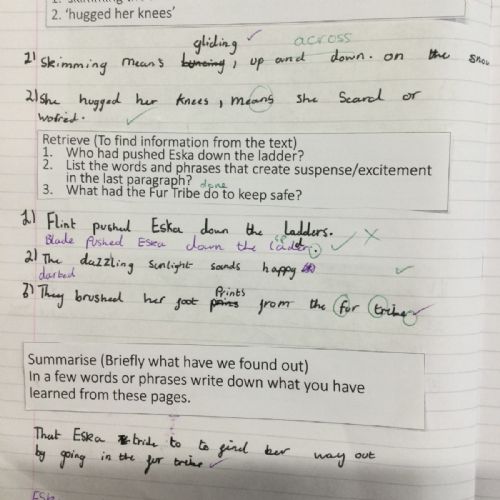 2. 'hugged her knees'
gliding across
1) Skimming means bouncing, up and down. on the snow
2) She hugged her knees, means she scard or
worred.
Retrieve (To find information from the text)
1. Who had pushed Eska down the ladder?
2. List the words and phrases that create suspense/excitement
in the last paragraph? done
3. What had the Fur Tribe do to keep safe?
1) Flint pushed Eska down the ladders.
Blade pushed Eska down the ladder.
2) The dazzling sunlight sounds happy
darted
3) They brushed her foot prints from the fur tribe
Summarise (Briefly what have we found out)
In a few words or phrases write down what you have
learned from these pages.
That Eska tride to to find her way out
by going in the fur tribe